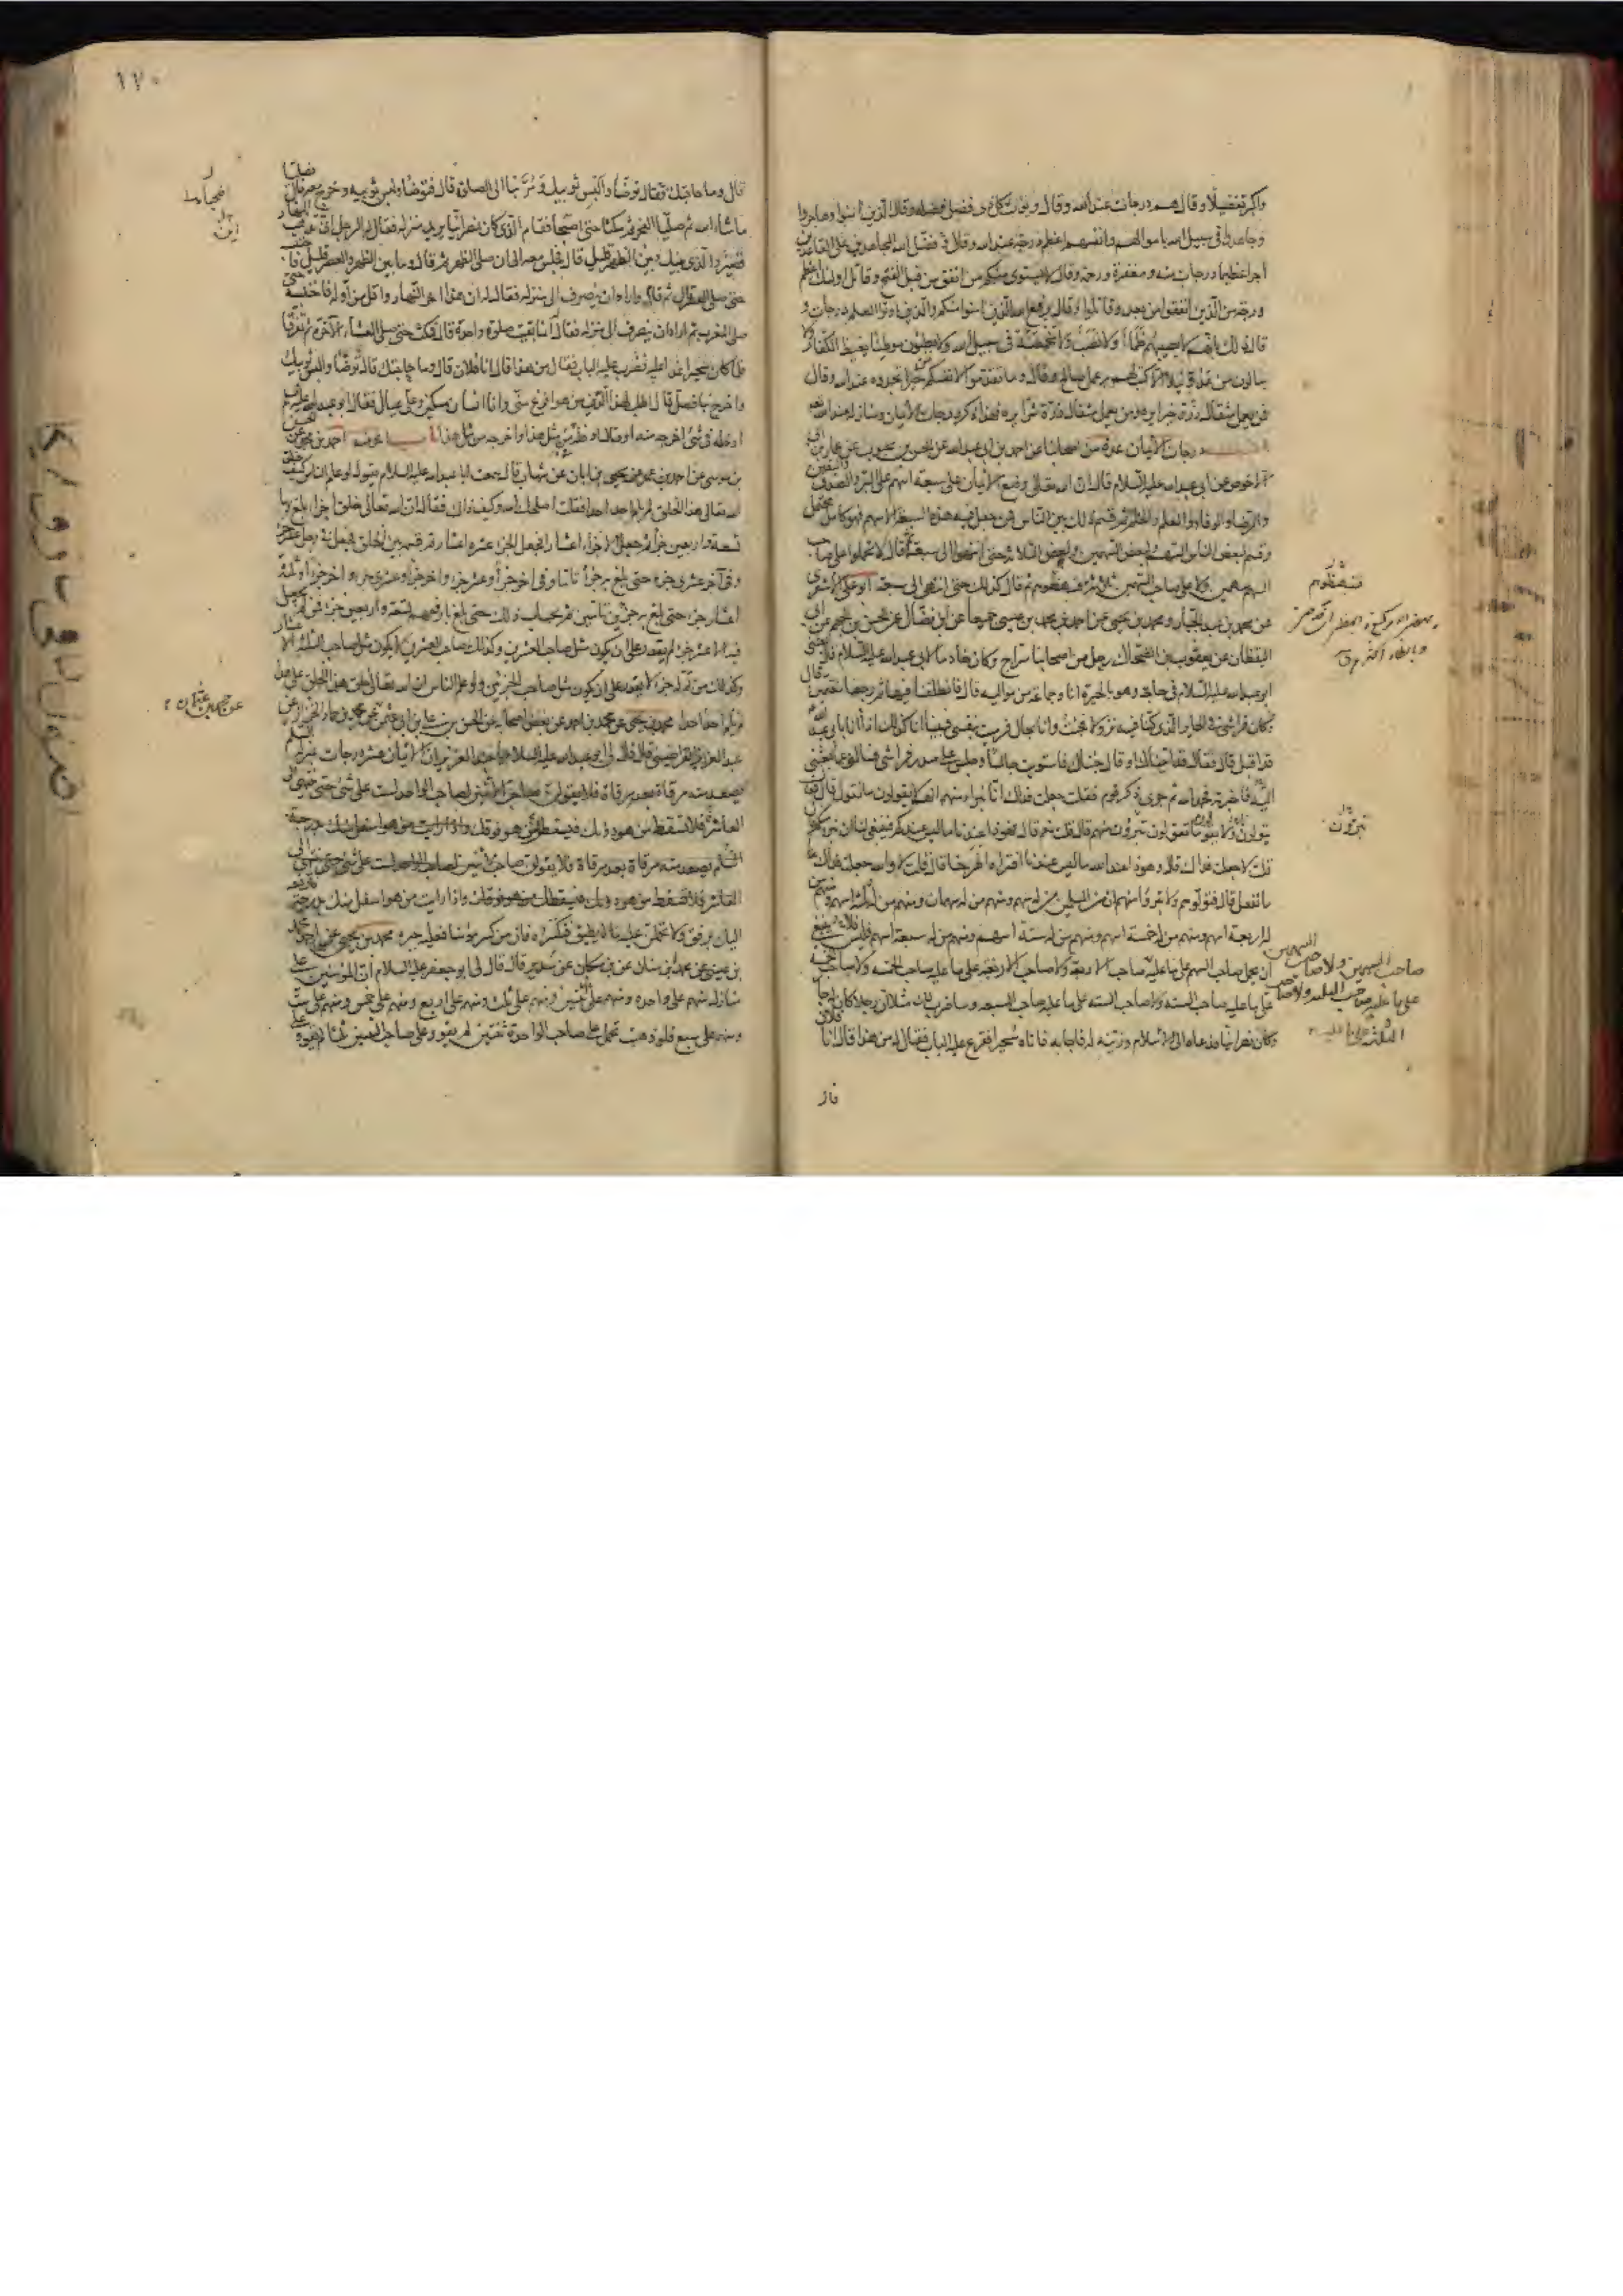 واكبر تفضيلا وقال هم درجات عند الله وقال ويؤت كل ذى فضل فضله وقال الذين امنوا وهاجروا
وجاهدوا فى سبيل الله باموالهم وانفسهم اعظم درجة عند الله وقال فضل الله المجاهدين على القاعدين
اجرا عظيما درجات منه ومغفرة ورحمة وقال لا يستوى منكم من انفق من قبل الفتح وقاتل اولئك اعظم
درجة من الذين انفقوا من بعد وقاتلوا وقال يرفع الله الذين امنوا منكم والذين اوتوا العلم درجات و
قال ذلك بانهم لا يصيبهم ظمأ ولا نصب ولا مخمصة فى سبيل الله ولا يطؤن موطئا يغيظ الكفار ولا
ينالون من عدو نيلا الا كتب لهم به عمل صالح وقال وما تقدموا لانفسكم من خير تجدوه عند الله وقال
فمن يعمل مثقال ذرة خيرا يره ومن يعمل مثقال ذرة شرا يره فهذا ذكر درجات الايمان ومنازله عند الله
درجات الايمان عدة من اصحابنا عن احمد بن ابى عبد الله عن الحسن بن محبوب عن عمار بن ابى
الاحوص عن ابى عبد الله عليه السلام قال ان الله تعالى وضع الايمان على سبعة اسهم على البر والصدق واليقين
والرضا والوفاء والعلم والحلم ثم قسم ذلك بين الناس فمن جعل فيه هذه السبعة الاسهم فهو كامل محتمل
وقسم لبعض الناس السهم ولبعض السهمين ولبعض الثلاثة حتى انتهوا الى سبعة ثم قال لا تحملوا على صاحب
السهم سهمين ولا على صاحب السهمين ثلاثة فتبهظوهم ثم قال كذلك حتى انتهى الى سبعة ابو على الاشعرى
عن محمد بن عبد الجبار ومحمد بن يحيى عن احمد بن محمد بن عيسى جميعا عن ابن فضال عن الحسن بن الجهم عن ابى
اليقظان عن يعقوب بن الضحاك عن رجل من اصحابنا سراج وكان خادما لابى عبد الله عليه السلام قال بعثنى
ابو عبد الله عليه السلام فى حاجة وهو بالحيرة انا وجماعة من مواليه قال فانطلقنا فيها ثم رجعنا مغتمين قال
وكان فراشى فى الحاير الذى كنا فيه نزولا فجئت وانا بحال فرميت بنفسى فبينا انا كذلك اذا انا بابى عبد الله
قد اقبل قال فقال قد اتيناك او قال جئناك فاستويت جالسا وجلس على صدر فراشى فسألنى عما بعثنى
اليه فاخبرته فحمد الله ثم جرى ذكر قوم فقلت جعلت فداك انا نبرأ منهم انهم لا يقولون ما نقول قال فقال
يتولونا ولا يقولون ما تقولون تبرؤن منهم قال قلت نعم قال فهوذا عندنا ما ليس عندكم فينبغى لنا ان نبرأ منكم
قلت لا جعلت فداك قال وهوذا عند الله ما ليس عندنا افتراه اطرحنا قال قلت لا والله جعلت فداك
ما نفعل قال فتولوهم ولا تبرؤا منهم ان من المسلمين من له سهم ومنهم من له سهمان ومنهم من له ثلثة اسهم ومنهم من
له اربعة اسهم ومنهم من له خمسة اسهم ومنهم من له ستة اسهم ومنهم من له سبعة اسهم فليس ينبغى
ان يحمل صاحب السهم على ما عليه صاحب الاربعة ولا صاحب الاربعة على ما عليه صاحب الخمسة ولا صاحب الخمسة
على ما عليه صاحب الستة ولا صاحب الستة على ما عليه صاحب السبعة وساضرب لك مثلا ان رجلا كان له جار
وكان نصرانيا فدعاه الى الاسلام وزينه له فاجابه فاتاه سحيرا فقرع عليه الباب فقال له من هذا قال انا فلان
تبرؤن
صاحب السهمين ولا صاحب السهمين
١٧٠
قال وما حاجتك فقال توضأ والبس ثوبيك ومر بنا الى الصلوة قال فتوضأ ولبس ثوبيه وخرج معه قال فصليا
ما شاء الله ثم صليا الفجر ثم مكثا حتى اصبحا فقام الذى كان نصرانيا يريد منزله فقال له الرجل اين تذهب النهار
قصير والذى بينك وبين الظهر قليل قال فجلس معه الى ان صلى الظهر ثم قال وما بين الظهر والعصر قليل فاحتبسه
حتى صلى العصر قال ثم قام واراد ان ينصرف الى منزله فقال له ان هذا اخر النهار واقل من اوله فاحتبسه حتى
صلى المغرب ثم اراد ان ينصرف الى منزله فقال له انما بقيت صلوة واحدة قال فمكث حتى صلى العشاء الاخرة ثم تفرقا
فلما كان سحيرا غدا عليه فضرب عليه الباب فقال من هذا قال انا فلان قال وما حاجتك قال توضأ والبس ثوبيك
واخرج بنا فصل قال اطلب لهذا الدين من هو افرغ منى وانا انسان مسكين وعلى عيال فقال ابو عبد الله عليه السلم
ادخله فى شئ اخرجه منه او قال ادخله من مثل هذا واخرجه من مثل هذا باب اخر منه احمد بن محمد عن الحسن
بن موسى عن احمد بن عمر عن يحيى بن ابان عن شهاب قال سمعت ابا عبد الله عليه السلام يقول لو علم الناس كيف خلق
الله تعالى هذا الخلق لم يلم احد احدا فقلت اصلحك الله وكيف ذاك فقال ان الله تعالى خلق اجزاء بلغ بها
تسعة واربعين جزأ ثم جعل الاجزاء اعشارا فجعل الجزء عشرة اعشار ثم قسمه بين الخلق فجعل فى رجل عشر جزء
وفى آخر عشرى جزء حتى بلغ به جزأ تاما وفى اخر جزأ وعشر جزء واخر جزأ وعشرى جزء واخر جزأ وثلثة
اعشار جزء حتى بلغ به جزئين تامين ثم بحساب ذلك حتى بلغ بارفعهم تسعة واربعين جزأ فمن لم يجعل
فيه الا عشر جزء لم يقدر على ان يكون مثل صاحب العشرين وكذلك صاحب العشرين لا يكون مثل صاحب الثلثة الاعشار
وكذلك من تم له جزء لا يقدر على ان يكون مثل صاحب الجزئين ولو علم الناس ان الله تعالى خلق هذا الخلق على هذا
لم يلم احد احدا محمد بن يحيى عن محمد بن احمد عن بعض اصحابه عن الحسن بن على بن ابى عثمن عن محمد بن حماد الخزاز عن
عبد العزيز القراطيسى قال قال لى ابو عبد الله عليه السلام يا عبد العزيز ان الايمان عشر درجات بمنزلة السلم
يصعد منه مرقاة بعد مرقاة فلا يقولن صاحب الاثنين لصاحب الواحد لست على شئ حتى ينتهى الى
العاشر فلا تسقط من هو دونك فيسقطك من هو فوقك واذا رايت من هو اسفل منك بدرجة
العاشر فلا تسقط من هو دونك فيسقطك من هو فوقك واذا رايت من هو اسفل منك بدرجة فارفعه
اليك برفق ولا تحملن عليه ما لا يطيق فتكسره فان من كسر مؤمنا فعليه جبره محمد بن يحيى عن احمد بن محمد
بن عيسى عن محمد بن سنان عن ابن مسكان عن سدير قال قال لى ابو جعفر عليه السلام ان المؤمنين على
منازل منهم على واحدة ومنهم على اثنين ومنهم على ثلث ومنهم على اربع ومنهم على خمس ومنهم على ست
ومنهم على سبع فلو ذهبت تحمل على صاحب الواحدة ثنتين لم يقو وعلى صاحب الثنتين ثلثا لم يقو